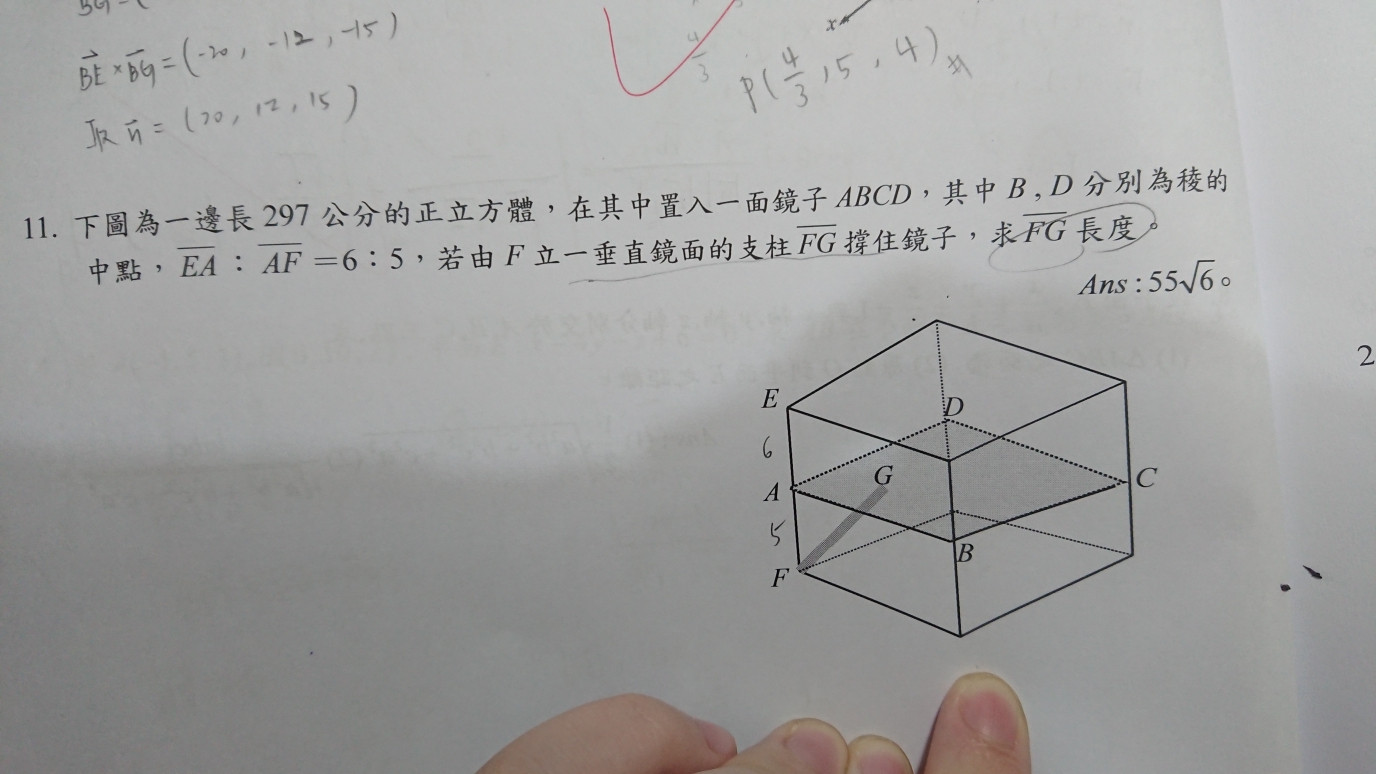 BG = (
BE × BG = (-20, -12, -15)
取 n = (20, 12, 15)
4/3
x
P(4/3, 5, 4)
11. 下圖為一邊長 297 公分的正立方體，在其中置入一面鏡子 ABCD，其中 B , D 分別為稜的
中點，EA：AF =6：5，若由 F 立一垂直鏡面的支柱 FG 撐住鏡子，求 FG 長度。
Ans : 55√6。
2
E
D
6
A
G
C
5
F
B